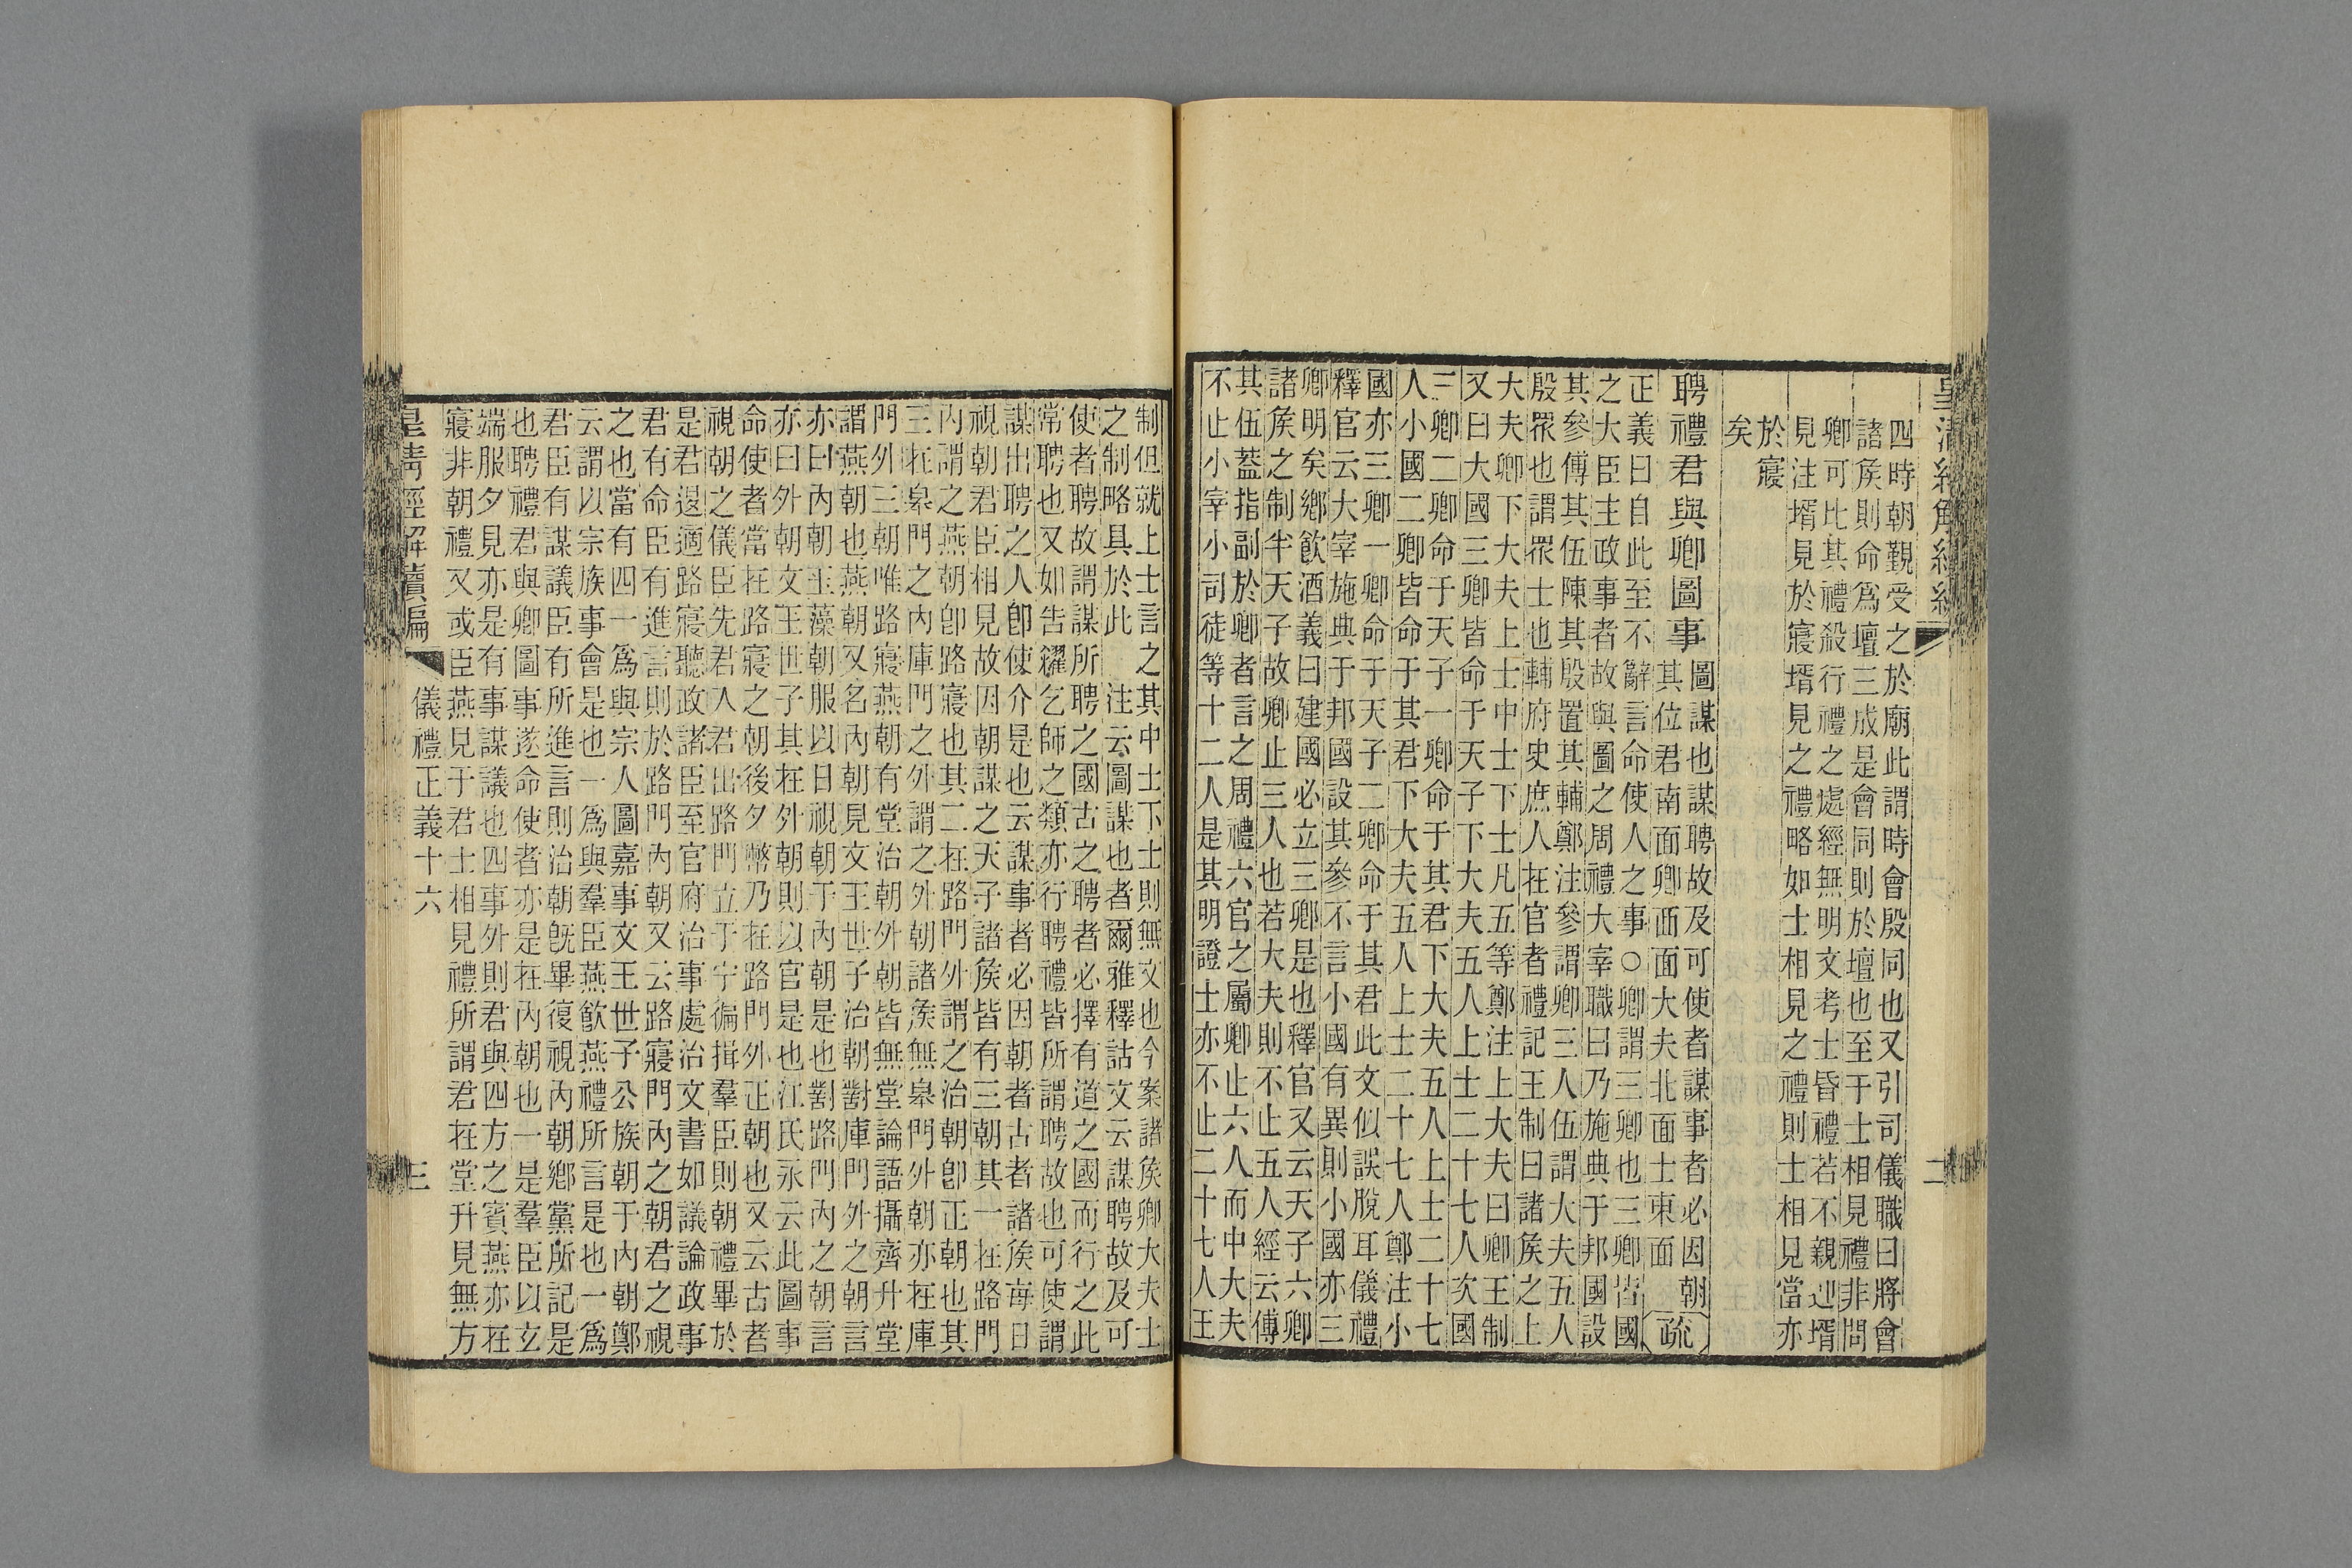 皇清經解續編
二
四時朝覲受之於廟此謂時會殷同也又引司儀職曰將會
諸矦則命爲壇三成是會同則於壇也至于士相見禮非問
卿可比其禮殺行禮之處經無明文考士昏禮若不親迎壻
見注壻見於寢壻見之禮略如士相見之禮則士相見當亦
於寢
矣
聘禮君與卿圖事
圖謀也謀聘故及可使者謀事者必因朝
其位君南面卿西面大夫北面士東面
疏
正義曰自此至不辭言命使人之事○卿謂三卿也三卿皆國
之大臣主政事者故與圖之周禮大宰職曰乃施典于邦國設
其參傅其伍陳其殷置其輔鄭注參謂卿三人伍謂大夫五人
殷眾也謂眾士也輔府史庶人在官者禮記王制曰諸矦之上
大夫卿下大夫上士中士下士凡五等鄭注上大夫曰卿王制
又曰大國三卿皆命于天子下大夫五人上士二十七人次國
三卿二卿命于天子一卿命于其君下大夫五人上士二十七
人小國二卿皆命于其君下大夫五人上士二十七人鄭注小
國亦三卿一卿命于天子二卿命于其君此文似誤脫耳儀禮
釋官云大宰施典于邦國設其參不言小國有異則小國亦三
卿明矣鄉飲酒義曰建國必立三卿是也釋官又云天子六卿
諸矦之制半天子故卿止三人也若大夫則不止五人經云傅
其伍蓋指副於卿者言之周禮六官之屬卿止六人而中大夫
不止小宰小司徒等十二人是其明證士亦不止二十七人王
制但就上士言之其中士下士則無文也今案諸矦卿大夫士
之制略具於此　注云圖謀也者爾雅釋詁文云謀聘故及可
使者聘故謂謀所聘之國古之聘者必擇有道之國而行之此
常聘也又如告糴乞師之類亦行聘禮皆所謂聘故也可使謂
謀出聘之人卽使介是也云謀事者必因朝者古者諸矦每日
視朝君臣相見故因朝謀之天子諸矦皆有三朝其一在路門
內謂之燕朝卽路寢也其二在路門外謂之治朝卽正朝也其
三在皋門之內庫門之外謂之外朝諸矦無皋門外朝亦在庫
門外三朝唯路寢燕朝有堂治朝外朝皆無堂論語攝齊升堂
謂燕朝也燕朝又名內朝見文王世子治朝對庫門外之朝言
亦曰內朝玉藻朝服以日視朝于內朝是也對路門內之朝言
亦曰外朝文王世子其在外朝則以官是也江氏永云此圖事
命使者當在路寢之朝後夕幣乃在路門外正朝也又云古者
視朝之儀臣先君入君出路門立于宁徧揖羣臣則朝禮畢於
是君退適路寢聽政諸臣至官府治事處治文書如議論政事
君有命臣有進言則於路門內朝又云路寢門內之朝君之視
之也當有四一爲與宗人圖嘉事文王世子公族朝于內朝鄭
云謂以宗族事會是也一爲與羣臣燕飲燕禮所言是也一爲
君臣有謀議臣有所進言則治朝旣畢復視內朝鄉黨所記是
也聘禮君與卿圖事遂命使者亦是在內朝也一是羣臣以玄
端服夕見亦是有事謀議也四事外則君與四方之賓燕亦在
寢非朝禮又或臣燕見于君士相見禮所謂君在堂升見無方
皇清經解續編
儀禮正義十六
三